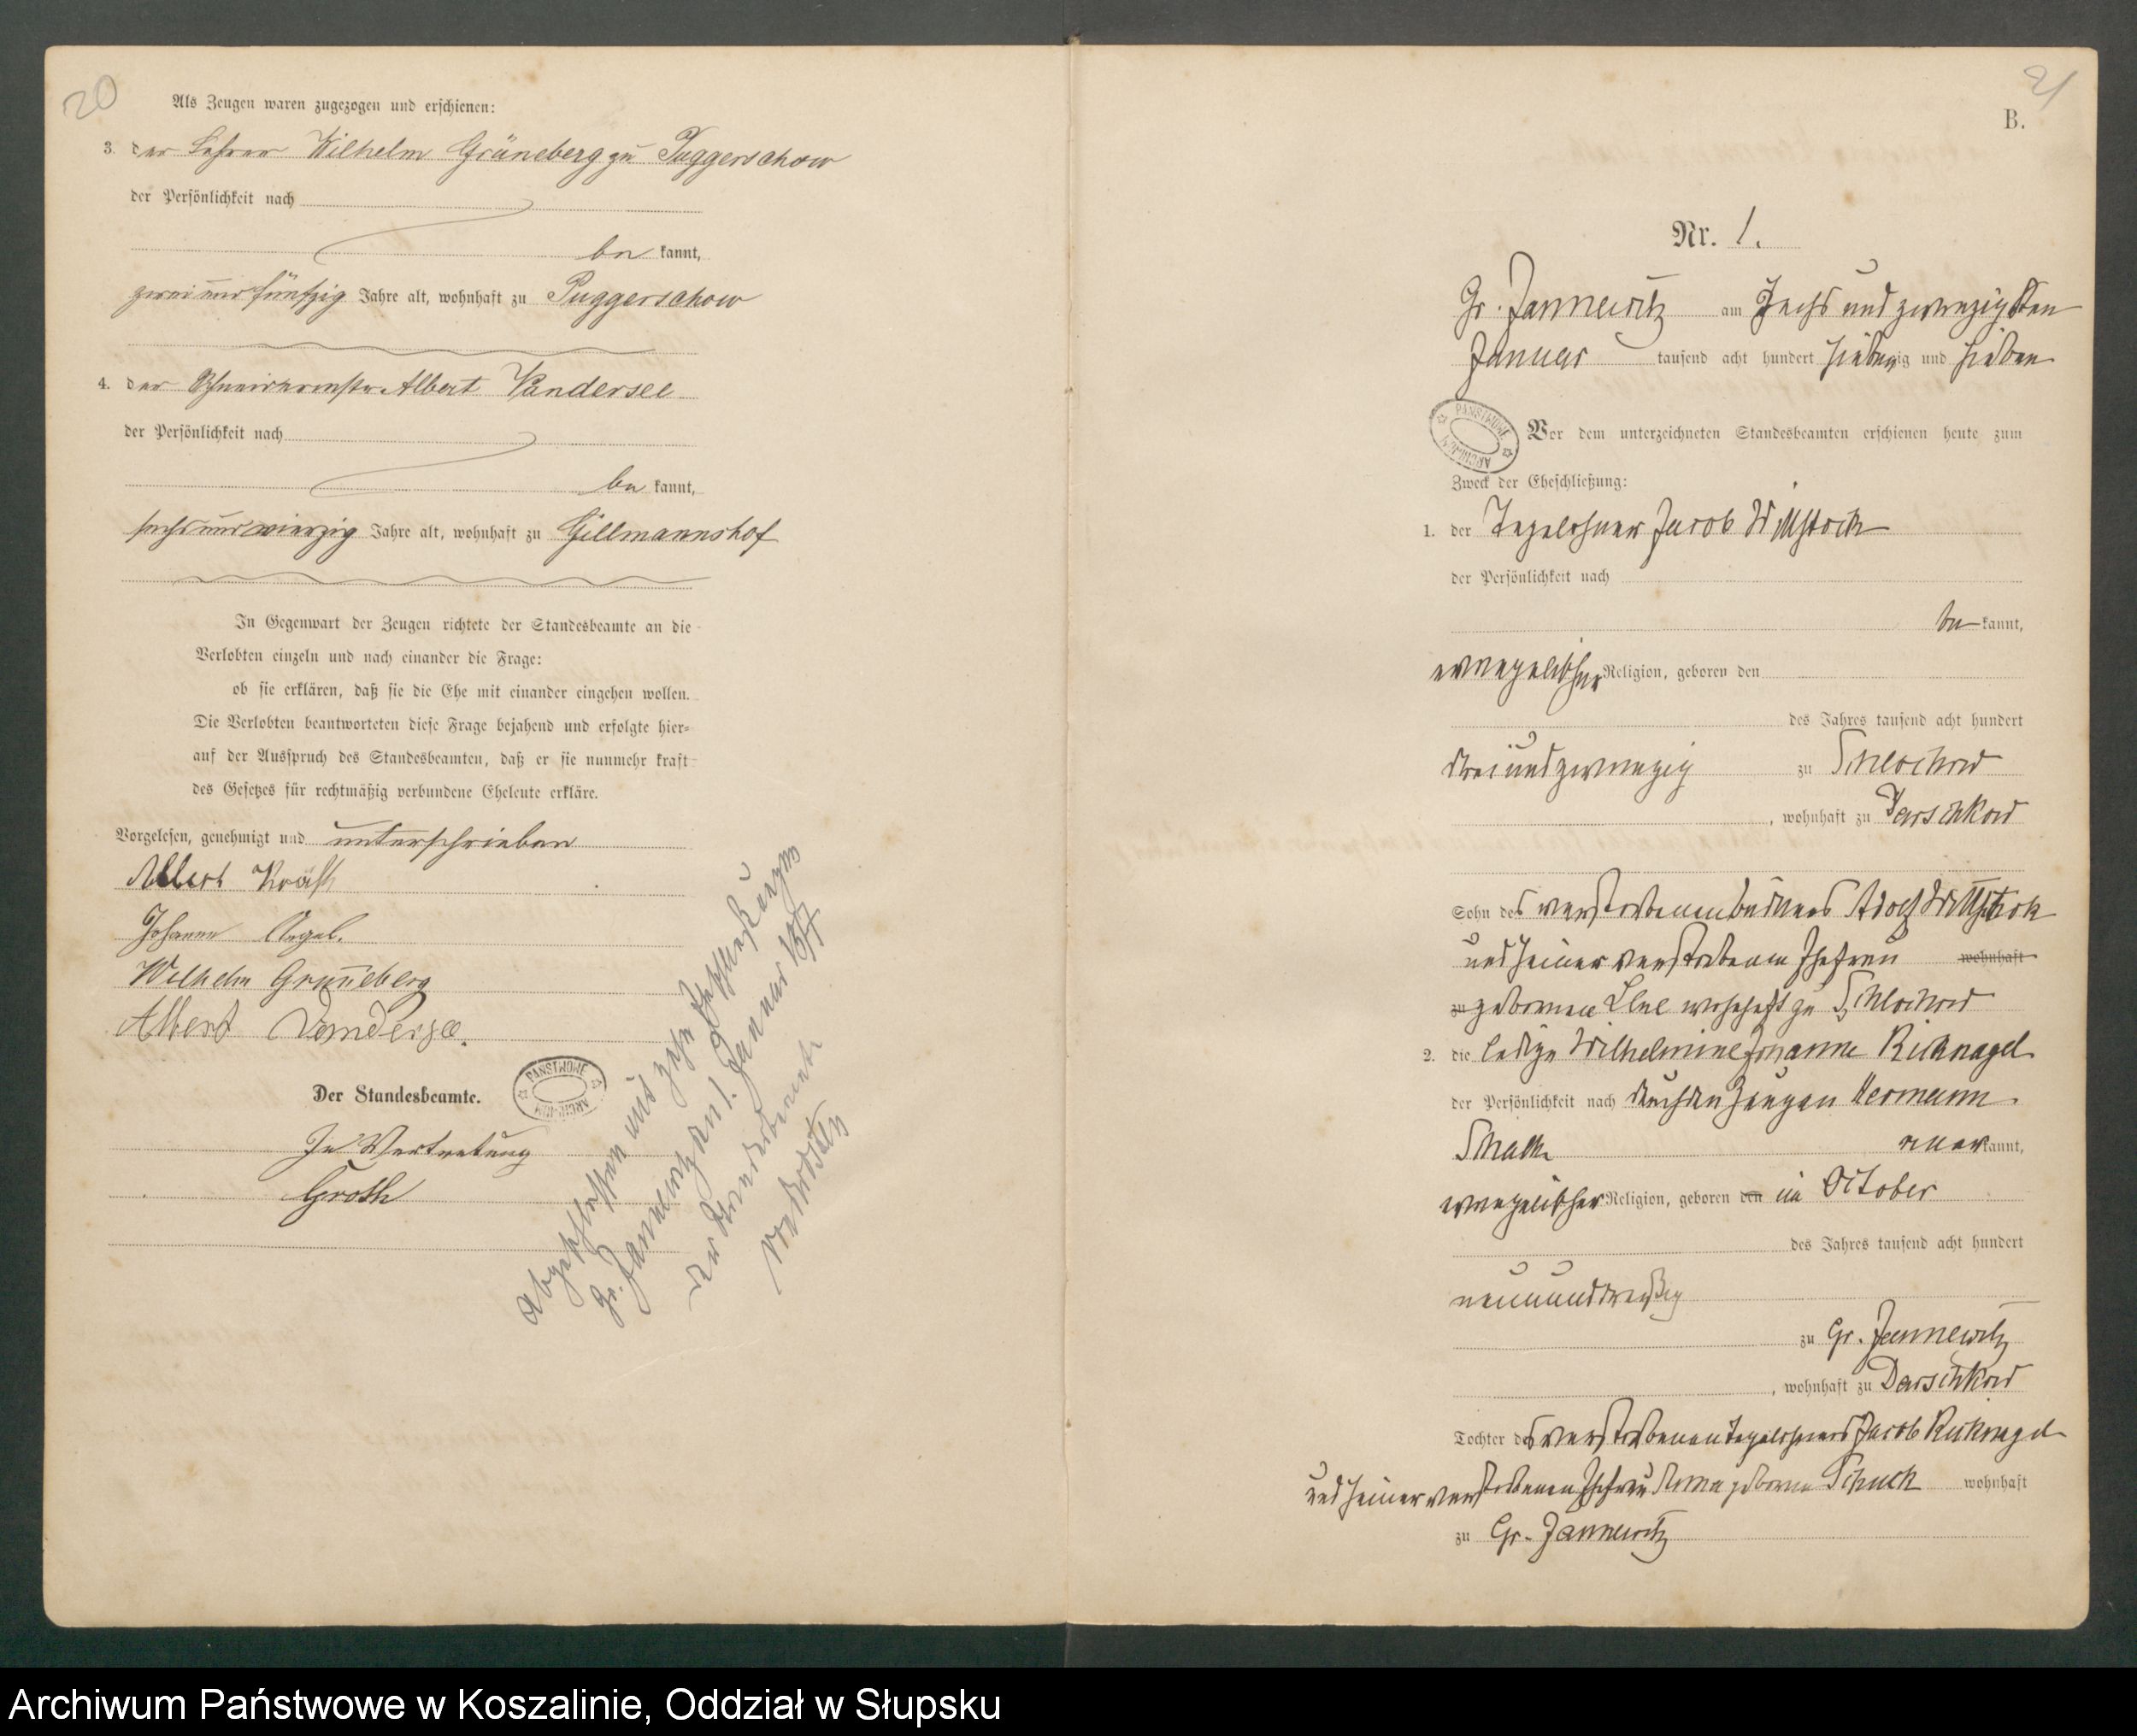 20
Als Zeugen waren zugezogen und erschienen:
3. der Lehrer Wilhelm Grüneberg zu Puggerschow
der Persönlichkeit nach
be kannt,
zwei und fünfzig Jahre alt, wohnhaft zu Puggerschow
4. der Schneidermstr. Albert Vandersee
der Persönlichkeit nach
be kannt,
sechs und vierzig Jahre alt, wohnhaft zu Hillmannshof
In Gegenwart der Zeugen richtete der Standesbeamte an die
Verlobten einzeln und nach einander die Frage:
ob sie erklären, daß sie die Ehe mit einander eingehen wollen.
Die Verlobten beantworteten diese Frage bejahend und erfolgte hier=
auf der Ausspruch des Standesbeamten, daß er sie nunmehr kraft
des Gesetzes für rechtmäßig verbundene Eheleute erkläre.
Vorgelesen, genehmigt und unterschrieben
Albert Kräft
Johanne
Wilhelm Grüneberg
Albert Vandersee.
Der Standesbeamte.
PANSTWOWE ARCHIWUM
In Vertretung
Groth
Abgeschlossen mit zehn
Gr. Jannewitz den 1. Januar 1877
der Standesbeamte
21
B.
Nr. 1.
Gr. Jannewitz am Sechs und zwanzigsten
Januar tausend acht hundert siebenzig und sieben
PANSTWOWE ARCHIWUM
Vor dem unterzeichneten Standesbeamten erschienen heute zum
Zweck der Eheschließung:
1. der Tagelöhner Jacob Wittstock
der Persönlichkeit nach
be kannt,
evangelischer Religion, geboren den
des Jahres tausend acht hundert
drei und zwanzig zu Schlochow
, wohnhaft zu Darschkow
Sohn des verstorbenen Büdners Adolf Wittstock
und seiner verstorbenen Ehefrau wohnhaft
zu geborenen wohnhaft zu Schlochow
2. die ledige Wilhelmine Johanne Rieknagel
der Persönlichkeit nach durch den Zeugen Hermann
Schalk aner kannt,
evangelischer Religion, geboren den im October
des Jahres tausend acht hundert
neun und dreißig
zu Gr. Jannewitz
, wohnhaft zu Darschkow
Tochter des verstorbenen Tagelöhners Jacob Rieknagel
und seiner verstorbenen Ehefrau Anna geborene Schuck wohnhaft
zu Gr. Jannewitz
Archiwum Państwowe w Koszalinie, Oddział w Słupsku